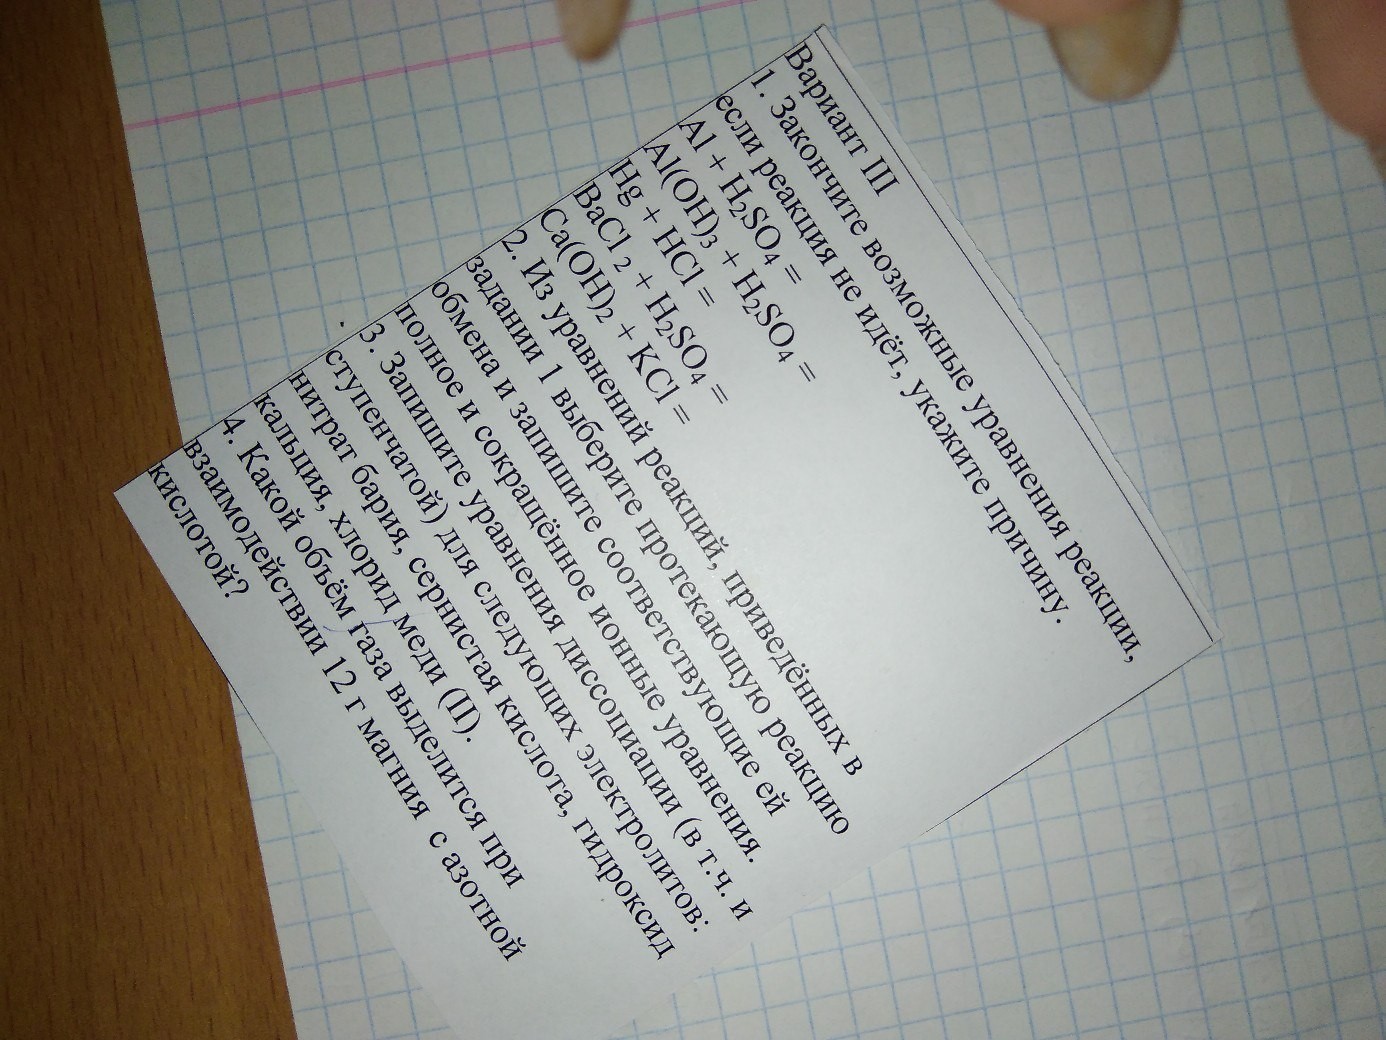 Вариант III
1. Закончите возможные уравнения реакции,
если реакция не идёт, укажите причину.
Al + H₂SO₄ =
Al(OH)₃ + H₂SO₄ =
Hg + HCl =
BaCl ₂ + H₂SO₄ =
Ca(OH)₂ + KCl =
2. Из уравнений реакций, приведённых в
задании 1 выберите протекающую реакцию
обмена и запишите соответствующие ей
полное и сокращённое ионные уравнения.
3. Запишите уравнения диссоциации (в т.ч. и
ступенчатой) для следующих электролитов:
нитрат бария, сернистая кислота, гидроксид
кальция, хлорид меди (II).
4. Какой объём газа выделится при
взаимодействии 12 г магния с азотной
кислотой?